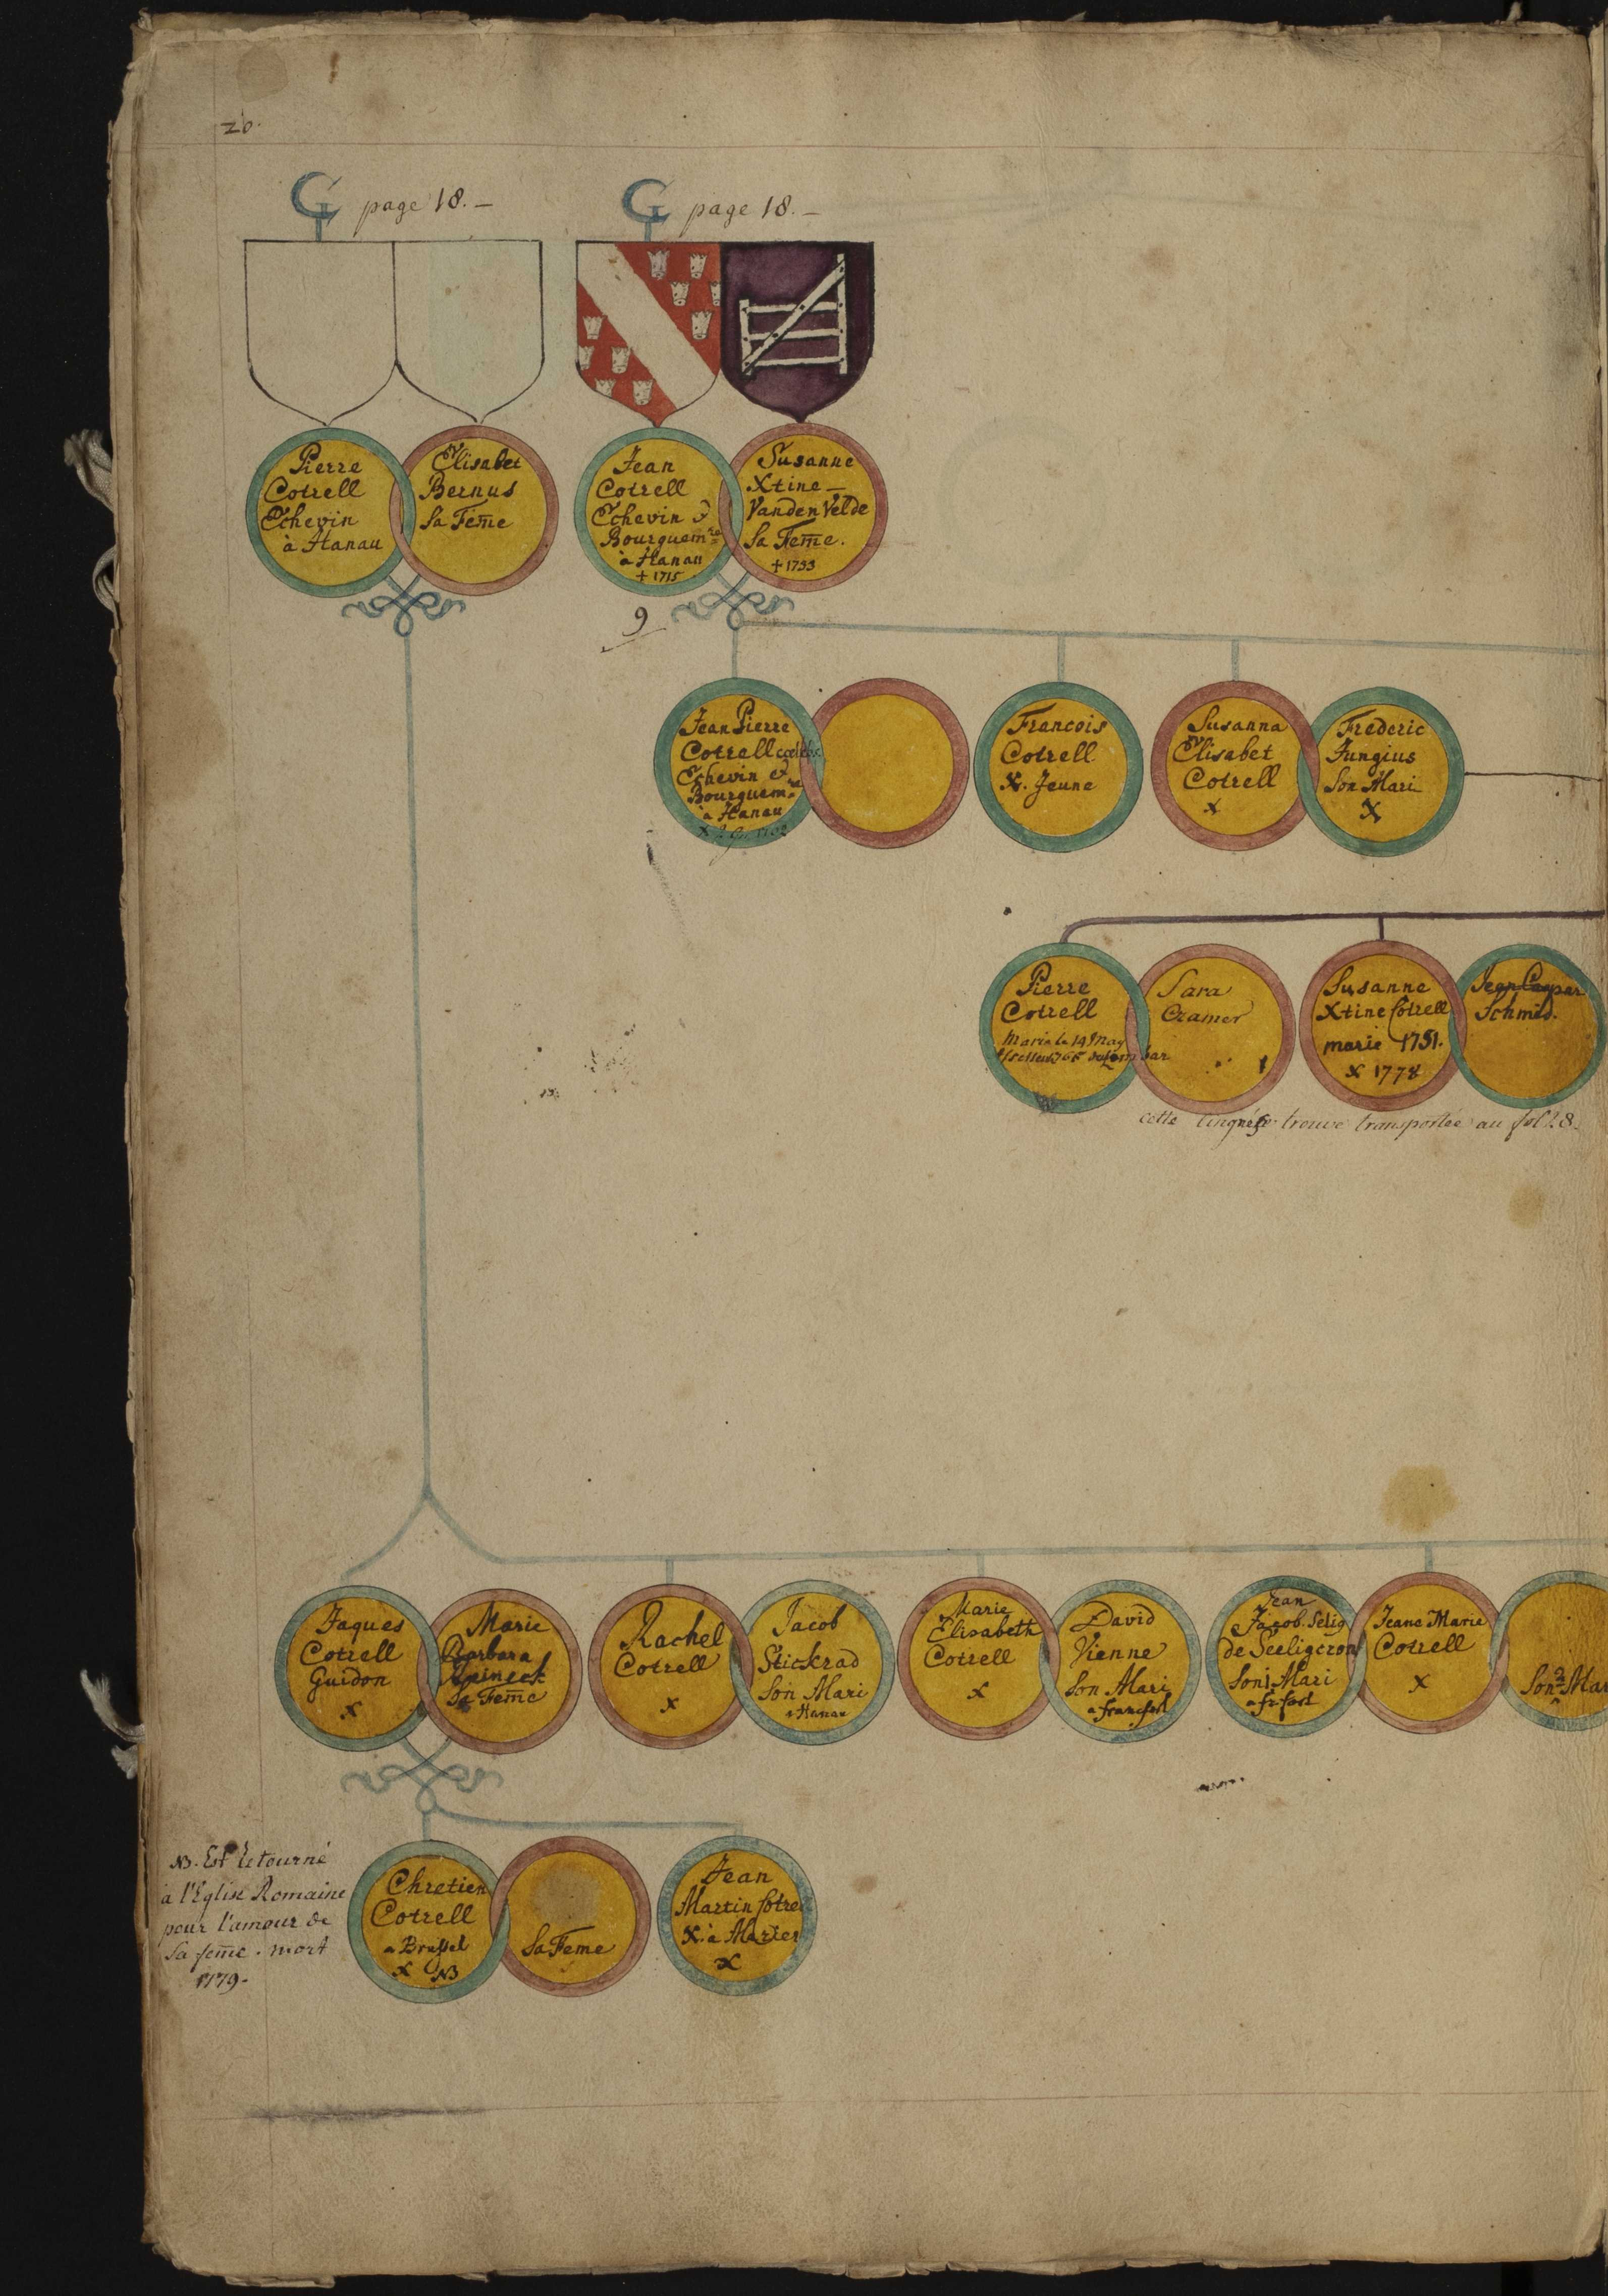 20.
G page 18. —
G page 18. —
Pierre
Cotrell
Echevin
à Hanau
Elisabet
Bernus
Sa Fem̄e
Jean
Cotrell
Echevin &
Bourguem.re
à Hanau
+ 1715
Susanne
Xtine —
Vanden Velde
Sa Fem̄e.
+ 1733
9
Jean Pierre
Cotrell cœlebs
Echevin &
Bourguem.re
à Hanau
Francois
Cotrell
X. Jeune
Susanna
Elisabet
Cotrell
X
Frederic
Jungius
Son Mari
X
Pierre
Cotrell
Marie le 14 May
Sara
Cramer
Susanne
Xtine Cotrell
marie 1751.
X 1778
Jean Caspar
Schmid.
cette lingnée se trouve transportée au fol 28.
Jaques
Cotrell
Guidon
X
Marie
Barbara
Sa Fem̄e
Rachel
Cotrell
X
Jacob
Stickrad
Son Mari
a Hanau
Marie
Elisabeth
Cotrell
X
David
Vienne
Son Mari
a francfort
Jean
Jacob Selig
de Seeligcron
Son 1 Mari
a fr.fort
Jeane Marie
Cotrell
X
Son 2 Mar
NB. Est Retourné
à l'Eglise Romaine
pour l'amour de
Sa fem̄e. mort
1779.
Chretien
Cotrell
a Brussel
X NB
Sa Feme
Jean
Martin Cotre
X. à Marier
X